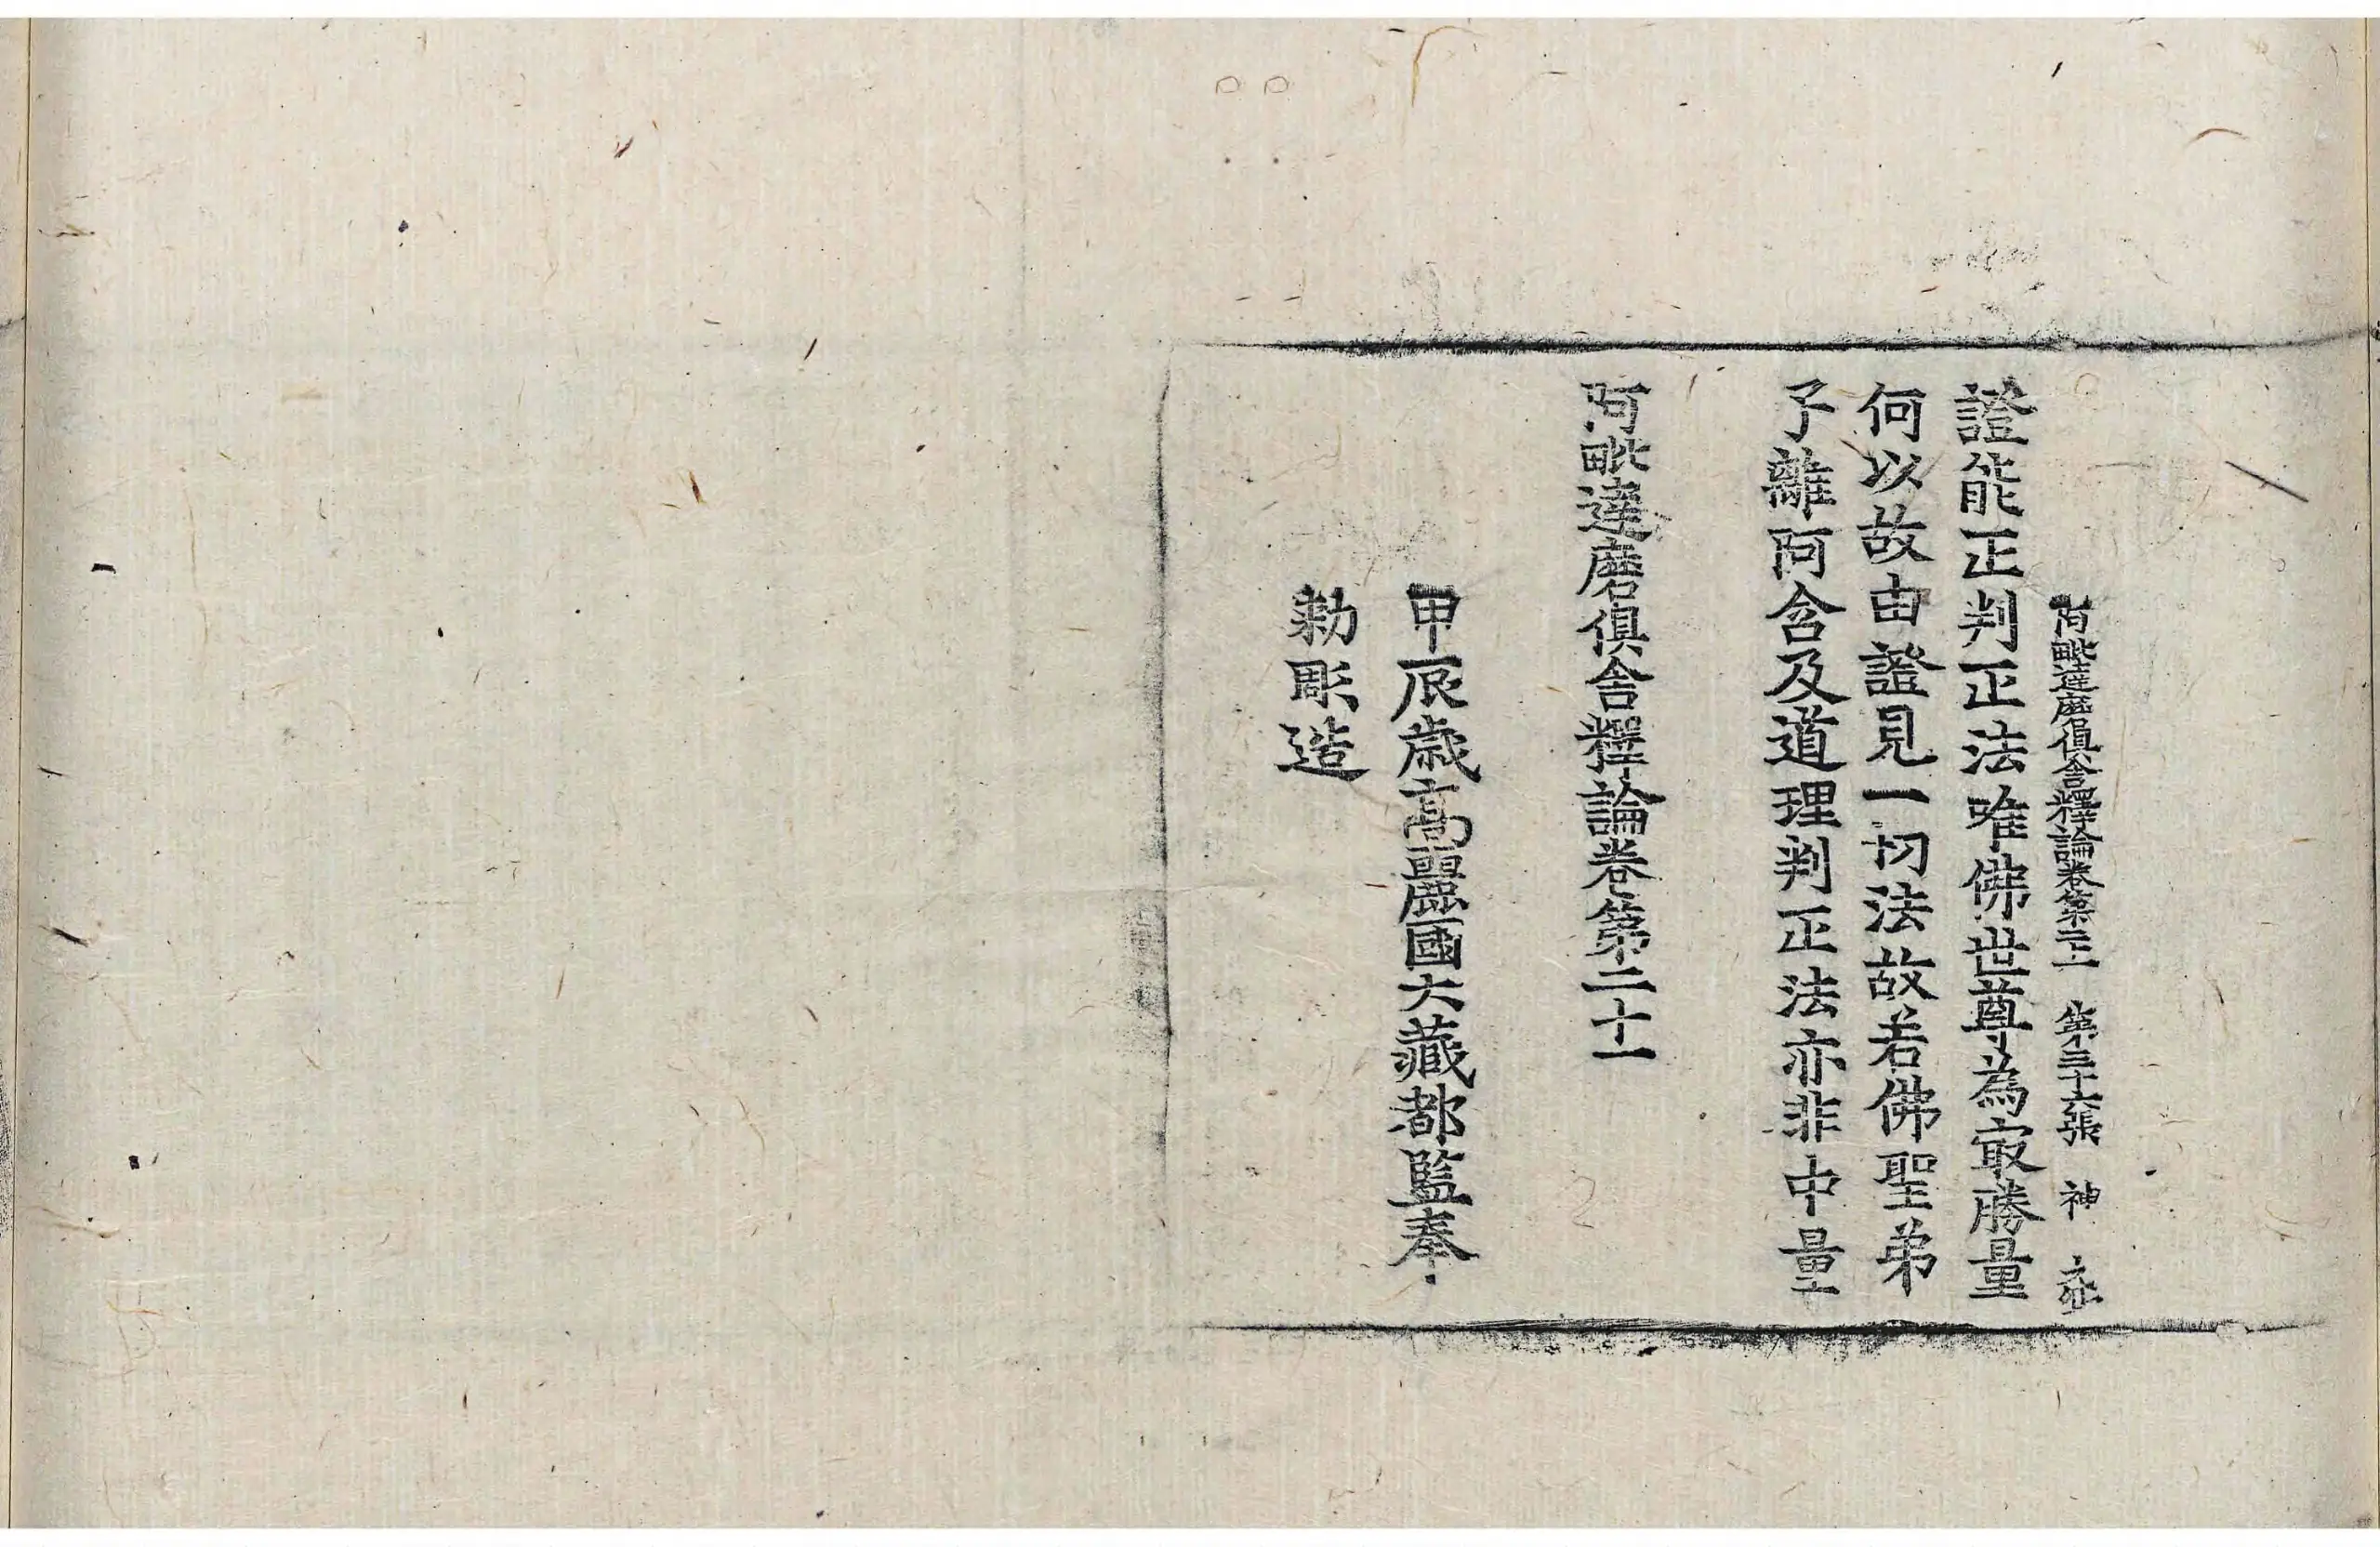 阿毗達磨俱舍釋論卷第二十一 第三十六張 神
證能正判正法唯佛世尊爲㝡勝量
何以故由證見一切法故若佛聖弟
子離阿含及道理判正法亦非中量
阿毗達磨俱舍釋論卷第二十一
甲辰歳高麗國大藏都監奉
勅彫造